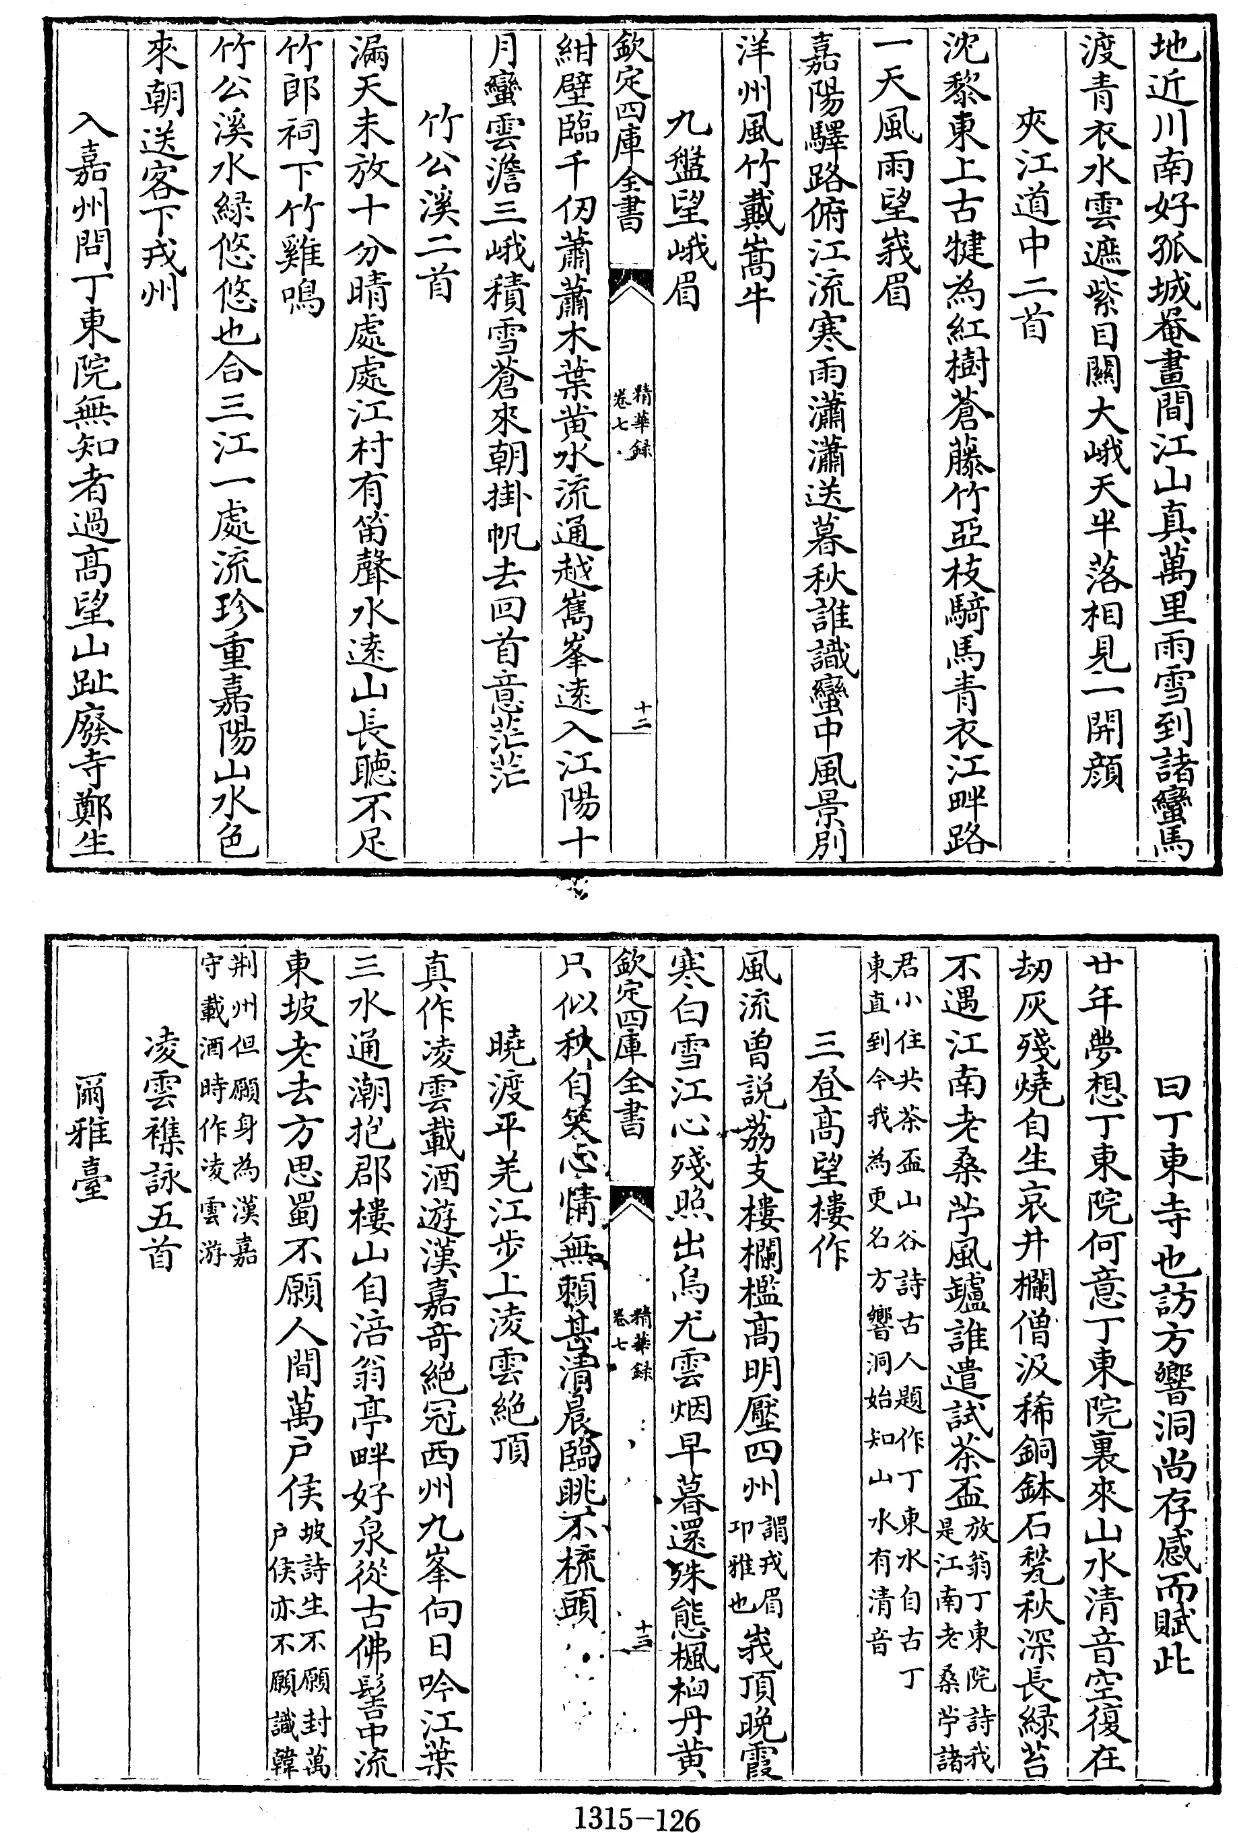 地近川南好孤城罨畫間江山真萬里雨雪到諸蠻馬
渡青衣水雲遮紫目關大峨天半落相見一開顔
夾江道中二首
沈黎東上古犍為紅樹蒼藤竹亞枝騎馬青衣江畔路
一天風雨望峩眉
嘉陽驛路俯江流寒雨瀟瀟送暮秋誰識蠻中風景别
洋州風竹戴嵩牛
九盤望峨眉
欽定四庫全書
精華録
卷七
十二
紺壁臨千仞蕭蕭木葉黄水流通越嶲峯遠入江陽十
月蠻雲澹三峨積雪蒼來朝掛帆去回首意茫茫
竹公溪二首
漏天未放十分晴處處江村有笛聲水逺山長聽不足
竹郎祠下竹雞鳴
竹公溪水緑悠悠也合三江一處流珍重嘉陽山水色
來朝送客下戎州
入嘉州問丁東院無知者過高望山趾廢寺鄭生
曰丁東寺也訪方響洞尚存感而賦此
廿年夢想丁東院何意丁東院裏來山水清音空復在
刼灰殘燒自生哀井欄僧汲稀銅鉢石甃秋深長緑苔
不遇江南老桑苧風罏誰遣試茶盃
放翁丁東院詩我
是江南老桑苧諸
君小住共茶盃山谷詩古人題作丁東水自古丁
東直到今我為更名方響洞始知山水有清音
三登高望樓作
風流曽説荔支樓欄檻高明壓四州
謂戎眉
卭雅也
峩頂晚霞
寒白雪江心殘照出烏尤雲烟早暮還殊態楓桕丹黄
欽定四庫全書
精華録
卷七
十三
只似秋自笑心情無賴甚清晨臨眺不梳頭
曉渡平羌江步上凌雲絶頂
真作凌雲載酒遊漢嘉奇絶冠西州九峯向日吟江葉
三水通潮抱郡樓山自涪翁亭畔好泉從古佛髻中流
東坡老去方思蜀不願人間萬户侯
坡詩生不願封萬
户侯亦不願識韓
荆州但願身為漢嘉
守載酒時作凌雲游
凌雲襍詠五首
爾雅臺
1315-126